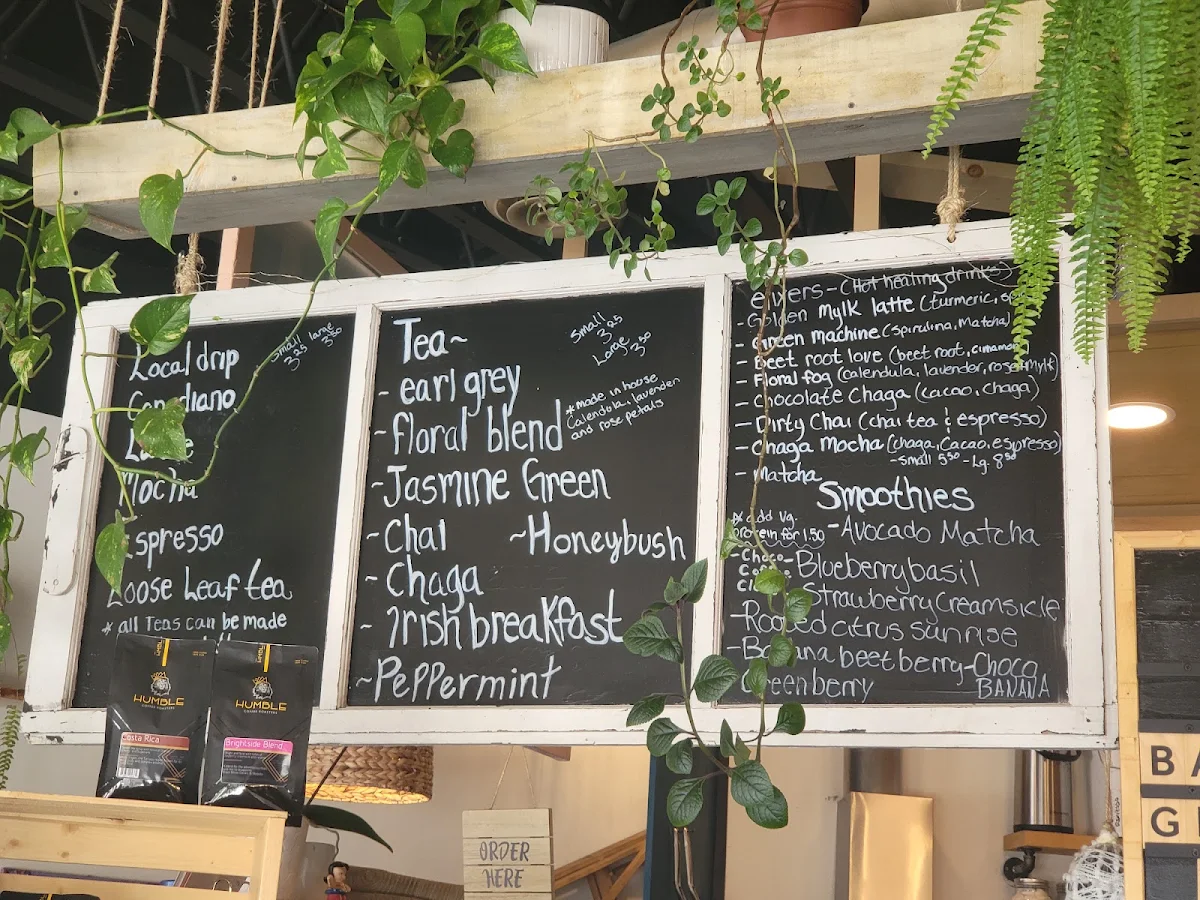 Local drip
Small large
3.25 3.50
Mocha
Espresso
Loose Leaf tea
* all Teas can be made
Tea~
Small
3.25
Large
3.50
- earl grey
*made in house
Calendula, lavender
and rose petals
~floral blend
~Jasmine Green
~Chai ~Honeybush
~Chaga
~Irish breakfast
~Peppermint
(Hot healing drinks)
- Golden mylk latte (turmeric,
- Green machine (spirulina, Matcha)
- Beet root love (beet root,
- Floral fog (calendula, lavender, rose mylk)
- Chocolate Chaga (cacao, chaga)
- Dirty Chai (chai tea & espresso)
- Chaga Mocha (chaga, Cacao, espresso)
- Small 5.50 - Lg. 8.50
- matcha
Smoothies
* add vg.
protein for 1.50
- Avocado Matcha
- Choco-
Blueberry basil
Strawberry Creamsicle
- Rooted citrus sunrise
- Banana beet berry - Choco
BANANA
Greenberry
HUMBLE
Costa Rica
HUMBLE
Brightside Blend
ORDER
HERE
BA
G